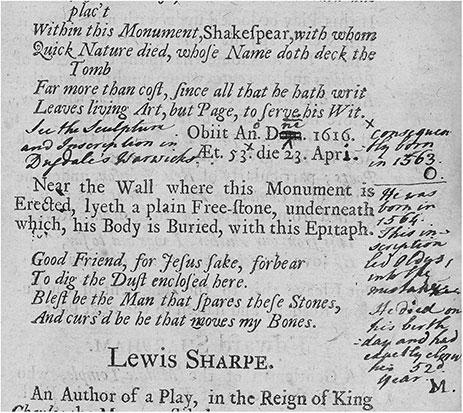 plac't
Within this Monument, Shakeſpear, with whom
Quick Nature died, whoſe Name doth deck the
Tomb
Far more than coſt, ſince all that he hath writ
Leaves living Art, but Page, to ſerve his Wit.
See the Sculpture
and Inscription in
Dugdale's Warwicks.
Obiit An.º Dni. 1616.
Æt. 53.x die 23 Apri.
x Consequen
tly born
in 1563.
O.
Near the Wall where this Monument is
Erected, lyeth a plain Free-ſtone, underneath
which, his Body is Buried, with this Epitaph.
He was
born in
1564.
This in-
scription
led Oldys,
into the
mistake.
He died on
his birth
-day and had
exactly
his 52d
Year. M.
Good Friend, for Jeſus ſake, forbear
To dig the Duſt encloſed here.
Bleſt be the Man that ſpares theſe Stones,
And curs'd be he that moves my Bones.
Lewis SHARPE.
An Author of a Play, in the Reign of King